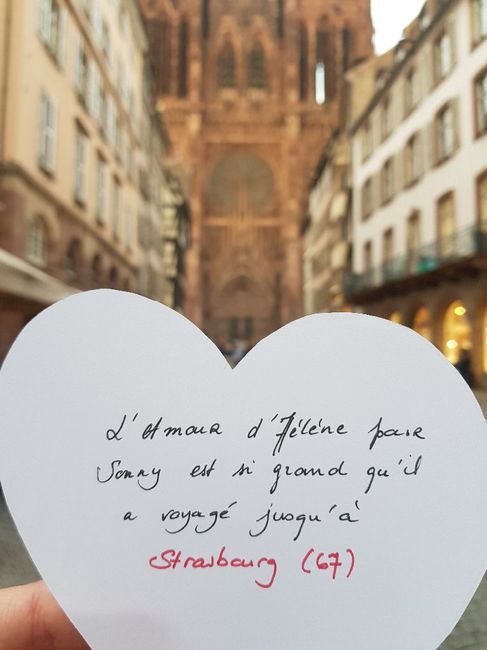 L'Amour d'Hélène pour
Sonny est si grand qu'il
a voyagé jusqu'à
Strasbourg (67)